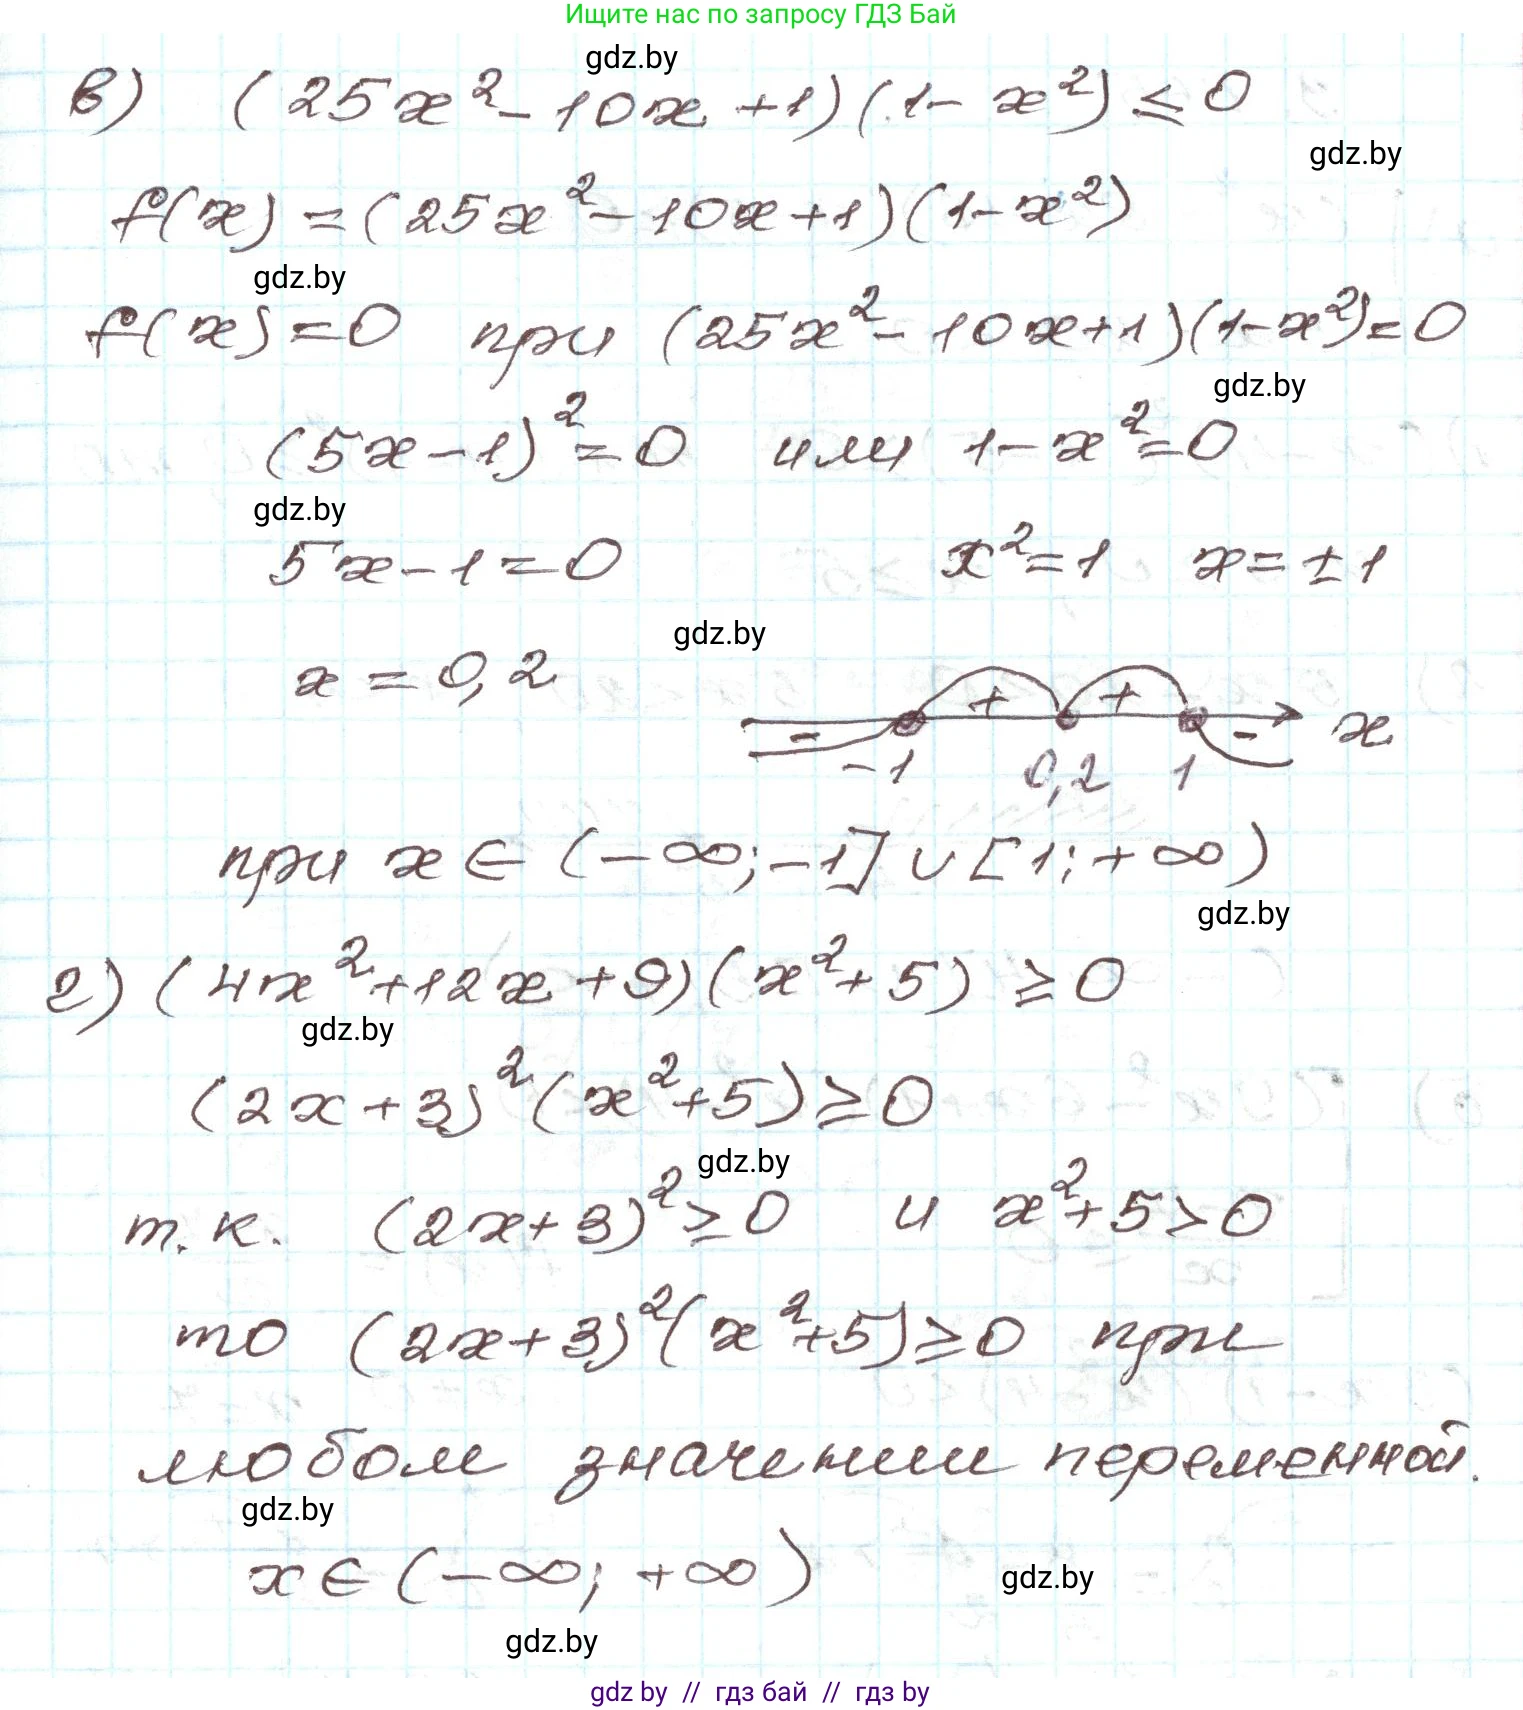 Ищите нас по запросу ГДЗ Бай
gdz.by
в) (25x² - 10x + 1)(1 - x²) ≤ 0
gdz.by
f(x) = (25x² - 10x + 1)(1 - x²)
gdz.by
f(x) = 0 при (25x² - 10x + 1)(1 - x²) = 0
gdz.by
(5x - 1)² = 0 или 1 - x² = 0
gdz.by
5x - 1 = 0 x² = 1 x = ± 1
gdz.by
x = 0,2
- + + - x
-1 0,2 1
при x ∈ (-∞; -1] ∪ [1; +∞)
gdz.by
г) (4x² + 12x + 9)(x² + 5) ≥ 0
gdz.by
(2x + 3)² (x² + 5) ≥ 0
gdz.by
т.к. (2x + 3)² ≥ 0 и x² + 5 > 0
то (2x + 3)² (x² + 5) ≥ 0 при
любом значении переменной.
gdz.by
x ∈ (-∞; +∞)
gdz.by
gdz.by
gdz by // гдз бай // гдз by